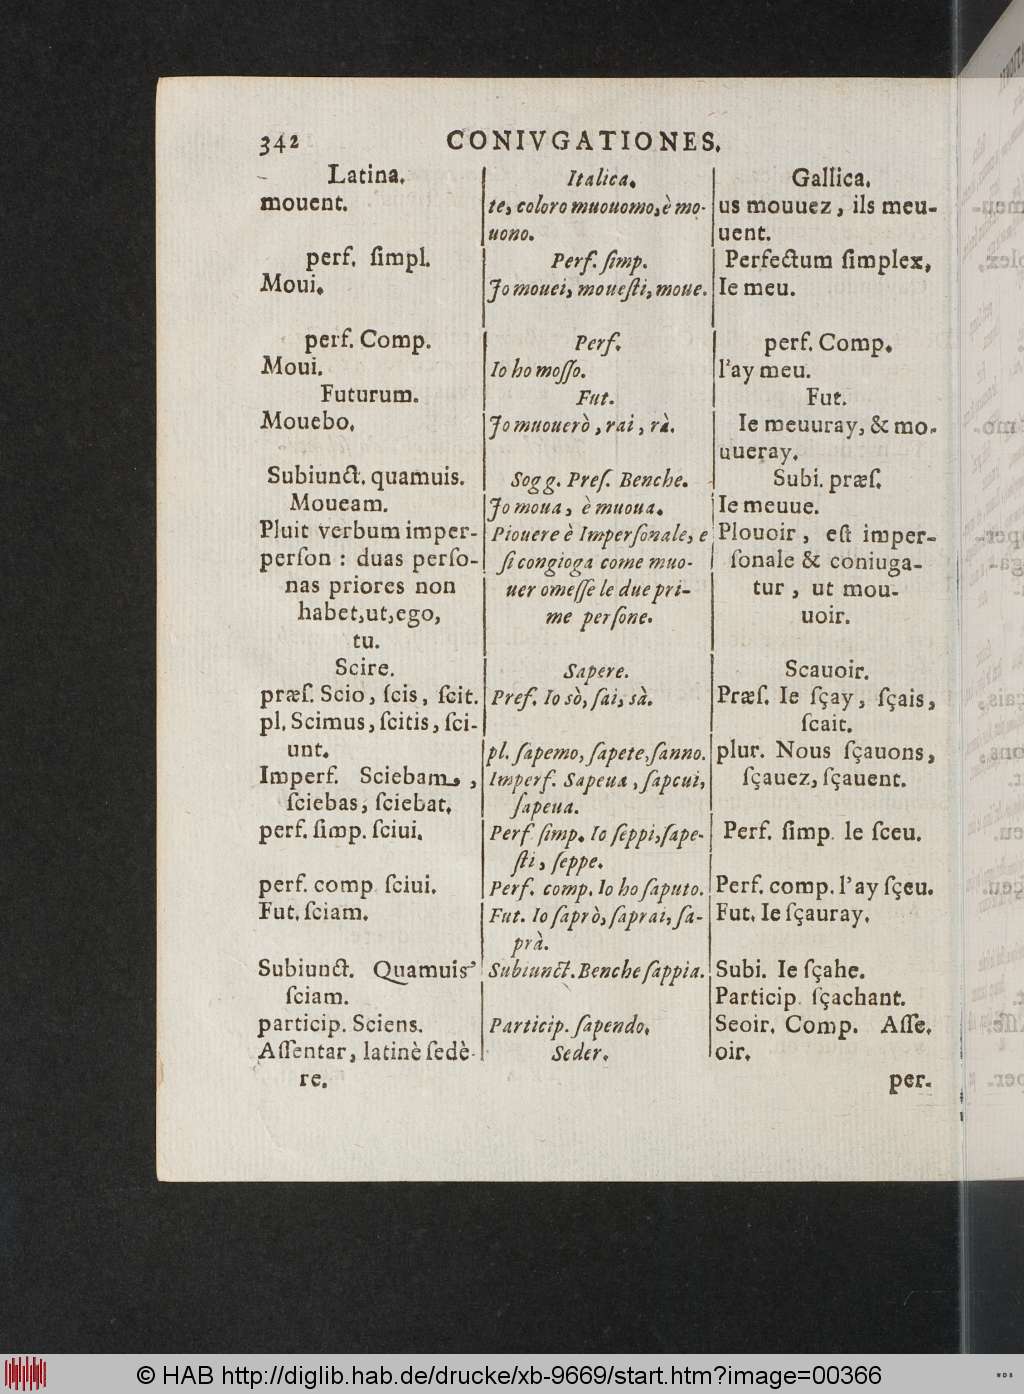 342 CONIVGATIONES.
Latina.
mouent.
perf. ſimpl.
Moui.
perf. Comp.
Moui.
Futurum.
Mouebo.
Subiunct. quamuis.
Moueam.
Pluit verbum imper-
perſon : duas perſo-
nas priores non
habet,ut,ego,
tu.
Scire.
præſ. Scio, ſcis, ſcit.
pl. Scimus, ſcitis, ſci-
unt.
Imperf. Sciebam, ,
ſciebas, ſciebat.
perf. ſimp. ſciui.
perf. comp. ſciui.
Fut. ſciam.
Subiunct. Quamuis
ſciam.
particip. Sciens.
Aſſentar, latinè ſedè-
re.
Italica.
te, coloro muouomo, è mo-
uono.
Perf. ſimp.
Jo mouei, moueſti, moue.
Perf.
Io ho moſſo.
Fut.
Jo muouerò, rai, rà.
Sogg. Preſ. Benche.
Jo moua, è muoua.
Piouere è Imperſonale, e
ſi congioga come muo-
uer omeſſe le due pri-
me perſone.
Sapere.
Preſ. Io sò, ſai, sà.
pl. ſapemo, ſapete, ſanno.
Imperf. Sapeua, ſapeui,
ſapeua.
Perf ſimp. Io ſeppi, ſape-
ſti, ſeppe.
Perf. comp. Io ho ſaputo.
Fut. Io ſaprò, ſaprai, ſa-
prà.
Subiunct. Benche ſappia.
Particip. ſapendo.
Seder.
Gallica.
us mouuez, ils meu-
uent.
Perfectum ſimplex,
Ie meu.
perf. Comp.
I'ay meu.
Fut.
Ie meuuray, & mo-
uueray.
Subi. præſ.
Ie meuue.
Plouoir, eſt imper-
ſonale & coniuga-
tur, ut mou-
uoir.
Scauoir.
Præſ. Ie ſçay, ſçais,
ſcait.
plur. Nous ſçauons,
ſçauez, ſçauent.
Perf. ſimp. Ie ſceu.
Perf. comp. I'ay ſçeu.
Fut. Ie ſçauray.
Subi. Ie ſçahe.
Particip. ſçachant.
Seoir. Comp. Aſſe.
oir.
per.
© HAB http://diglib.hab.de/drucke/xb-9669/start.htm?image=00366